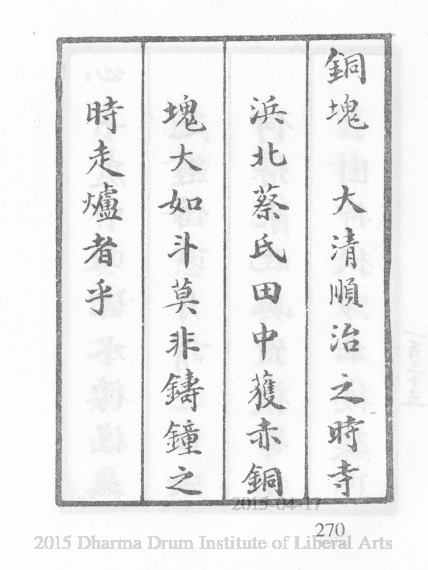 銅塊　大清順治之時寺
浜北蔡氏田中獲赤銅
塊大如斗莫非鑄鐘之
時走爐者乎
2015-04-17
270
2015 Dharma Drum Institute of Liberal Arts